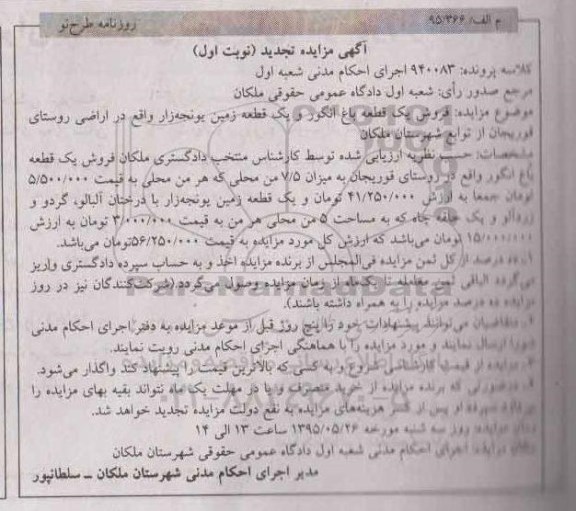 م الف/ ۹۵/۳۶۶
روزنامه طرح‌نو
آگهی مزایده تجدید (نوبت اول)
کلاسه پرونده: ۹۴۰۰۸۳ اجرای احکام مدنی شعبه اول
مرجع صدور رأی: شعبه اول دادگاه عمومی حقوقی ملکان
موضوع مزایده: فروش یک قطعه باغ انگور و یک قطعه زمین یونجه‌زار واقع در اراضی روستای
قوریجان از توابع شهرستان ملکان
مشخصات: حسب نظریه ارزیابی شده توسط کارشناس منتخب دادگستری ملکان فروش یک قطعه
باغ انگور واقع در روستای قوریجان به میزان ۷/۵ من محلی که هر من محلی به قیمت ۵/۵۰۰/۰۰۰
تومان جمعا به ارزش ۴۱/۲۵۰/۰۰۰ تومان و یک قطعه زمین یونجه‌زار با درختان آلبالو، گردو و
زردآلو و یک حلقه چاه که به مساحت ۵ من محلی هر من به قیمت ۳/۰۰۰/۰۰۰ تومان به ارزش
۱۵/۰۰۰/۰۰۰ تومان می‌باشد که ارزش کل مورد مزایده به قیمت ۵۶/۲۵۰/۰۰۰تومان می‌باشد.
۱. ده درصد از کل ثمن مزایده فی‌المجلس از برنده مزایده اخذ و به حساب سپرده دادگستری واریز
می‌گردد الباقی ثمن معامله تا یک‌ماه از زمان مزایده وصول می‌گردد.(شرکت‌کنندگان نیز در روز
مزایده ده درصد مزایده را به همراه داشته باشند).
۲. متقاضیان می‌توانند پیشنهادات خود را پنج روز قبل از موعد مزایده به دفتر اجرای احکام مدنی
ارسال نمایند و مورد مزایده را با هماهنگی اجرای احکام مدنی رویت نمایند.
۳. مزایده از قیمت کارشناسی شروع و به کسی که بالاترین قیمت را پیشنهاد کند واگذار می‌شود.
۴. درصورتی که برنده مزایده از خرید منصرف و یا در مهلت یک ماه نتواند بقیه بهای مزایده را
سپرده او پس از کسر هزینه‌های مزایده به نفع دولت مزایده تجدید خواهد شد.
زمان مزایده: روز سه شنبه مورخه ۱۳۹۵/۰۵/۲۶ ساعت ۱۳ الی ۱۴
مکان مزایده: اجرای احکام مدنی شعبه اول دادگاه عمومی حقوقی شهرستان ملکان
مدیر اجرای احکام مدنی شهرستان ملکان ــ سلطانپور